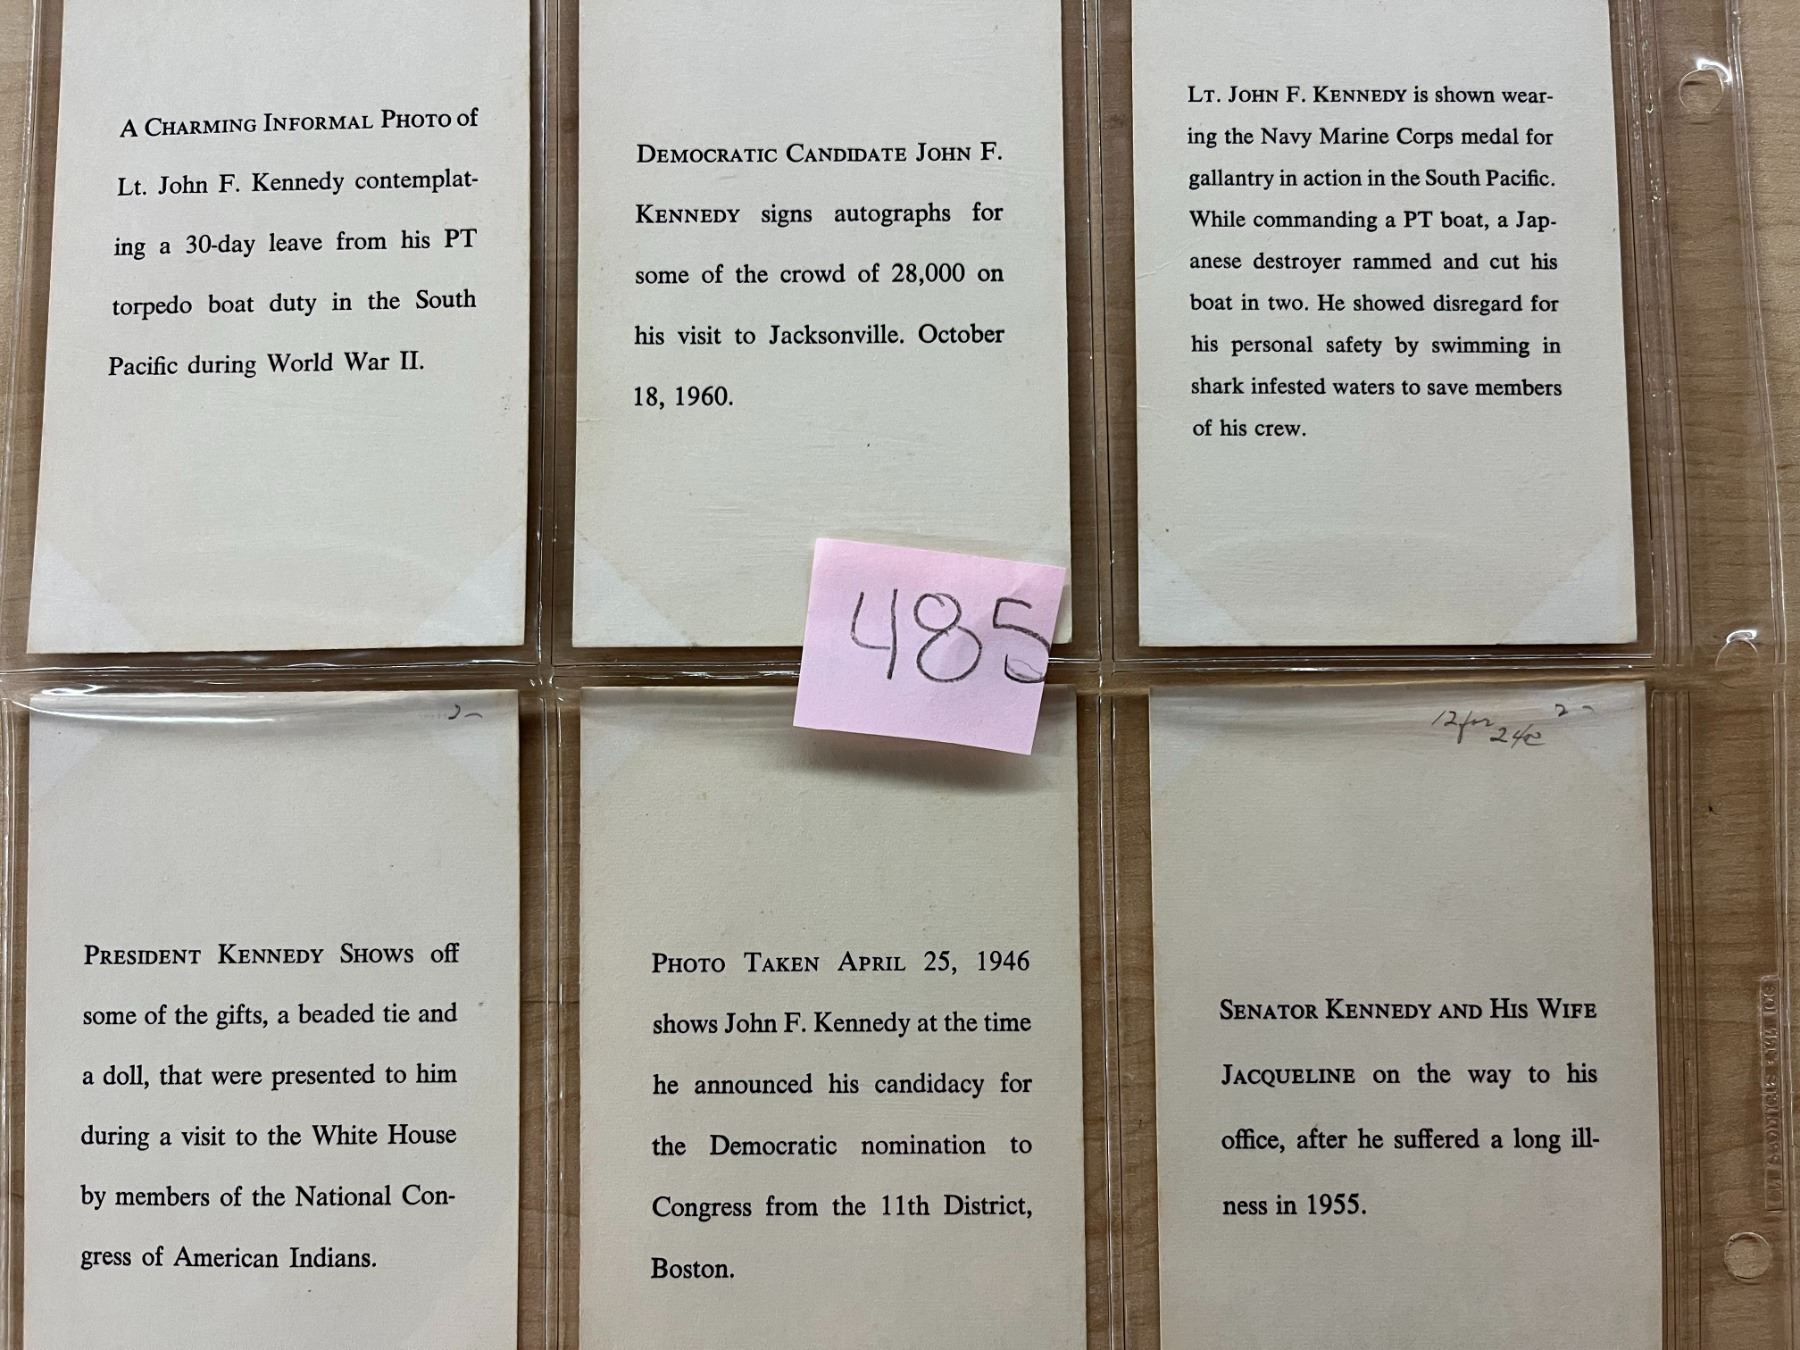 A CHARMING INFORMAL PHOTO of
Lt. John F. Kennedy contemplat-
ing a 30-day leave from his PT
torpedo boat duty in the South
Pacific during World War II.
DEMOCRATIC CANDIDATE JOHN F.
KENNEDY signs autographs for
some of the crowd of 28,000 on
his visit to Jacksonville. October
18, 1960.
LT. JOHN F. KENNEDY is shown wear-
ing the Navy Marine Corps medal for
gallantry in action in the South Pacific.
While commanding a PT boat, a Jap-
anese destroyer rammed and cut his
boat in two. He showed disregard for
his personal safety by swimming in
shark infested waters to save members
of his crew.
485
2-
PRESIDENT KENNEDY SHOWS off
some of the gifts, a beaded tie and
a doll, that were presented to him
during a visit to the White House
by members of the National Con-
gress of American Indians.
PHOTO TAKEN APRIL 25, 1946
shows John F. Kennedy at the time
he announced his candidacy for
the Democratic nomination to
Congress from the 11th District,
Boston.
12 for
2-
SENATOR KENNEDY AND HIS WIFE
JACQUELINE on the way to his
office, after he suffered a long ill-
ness in 1955.